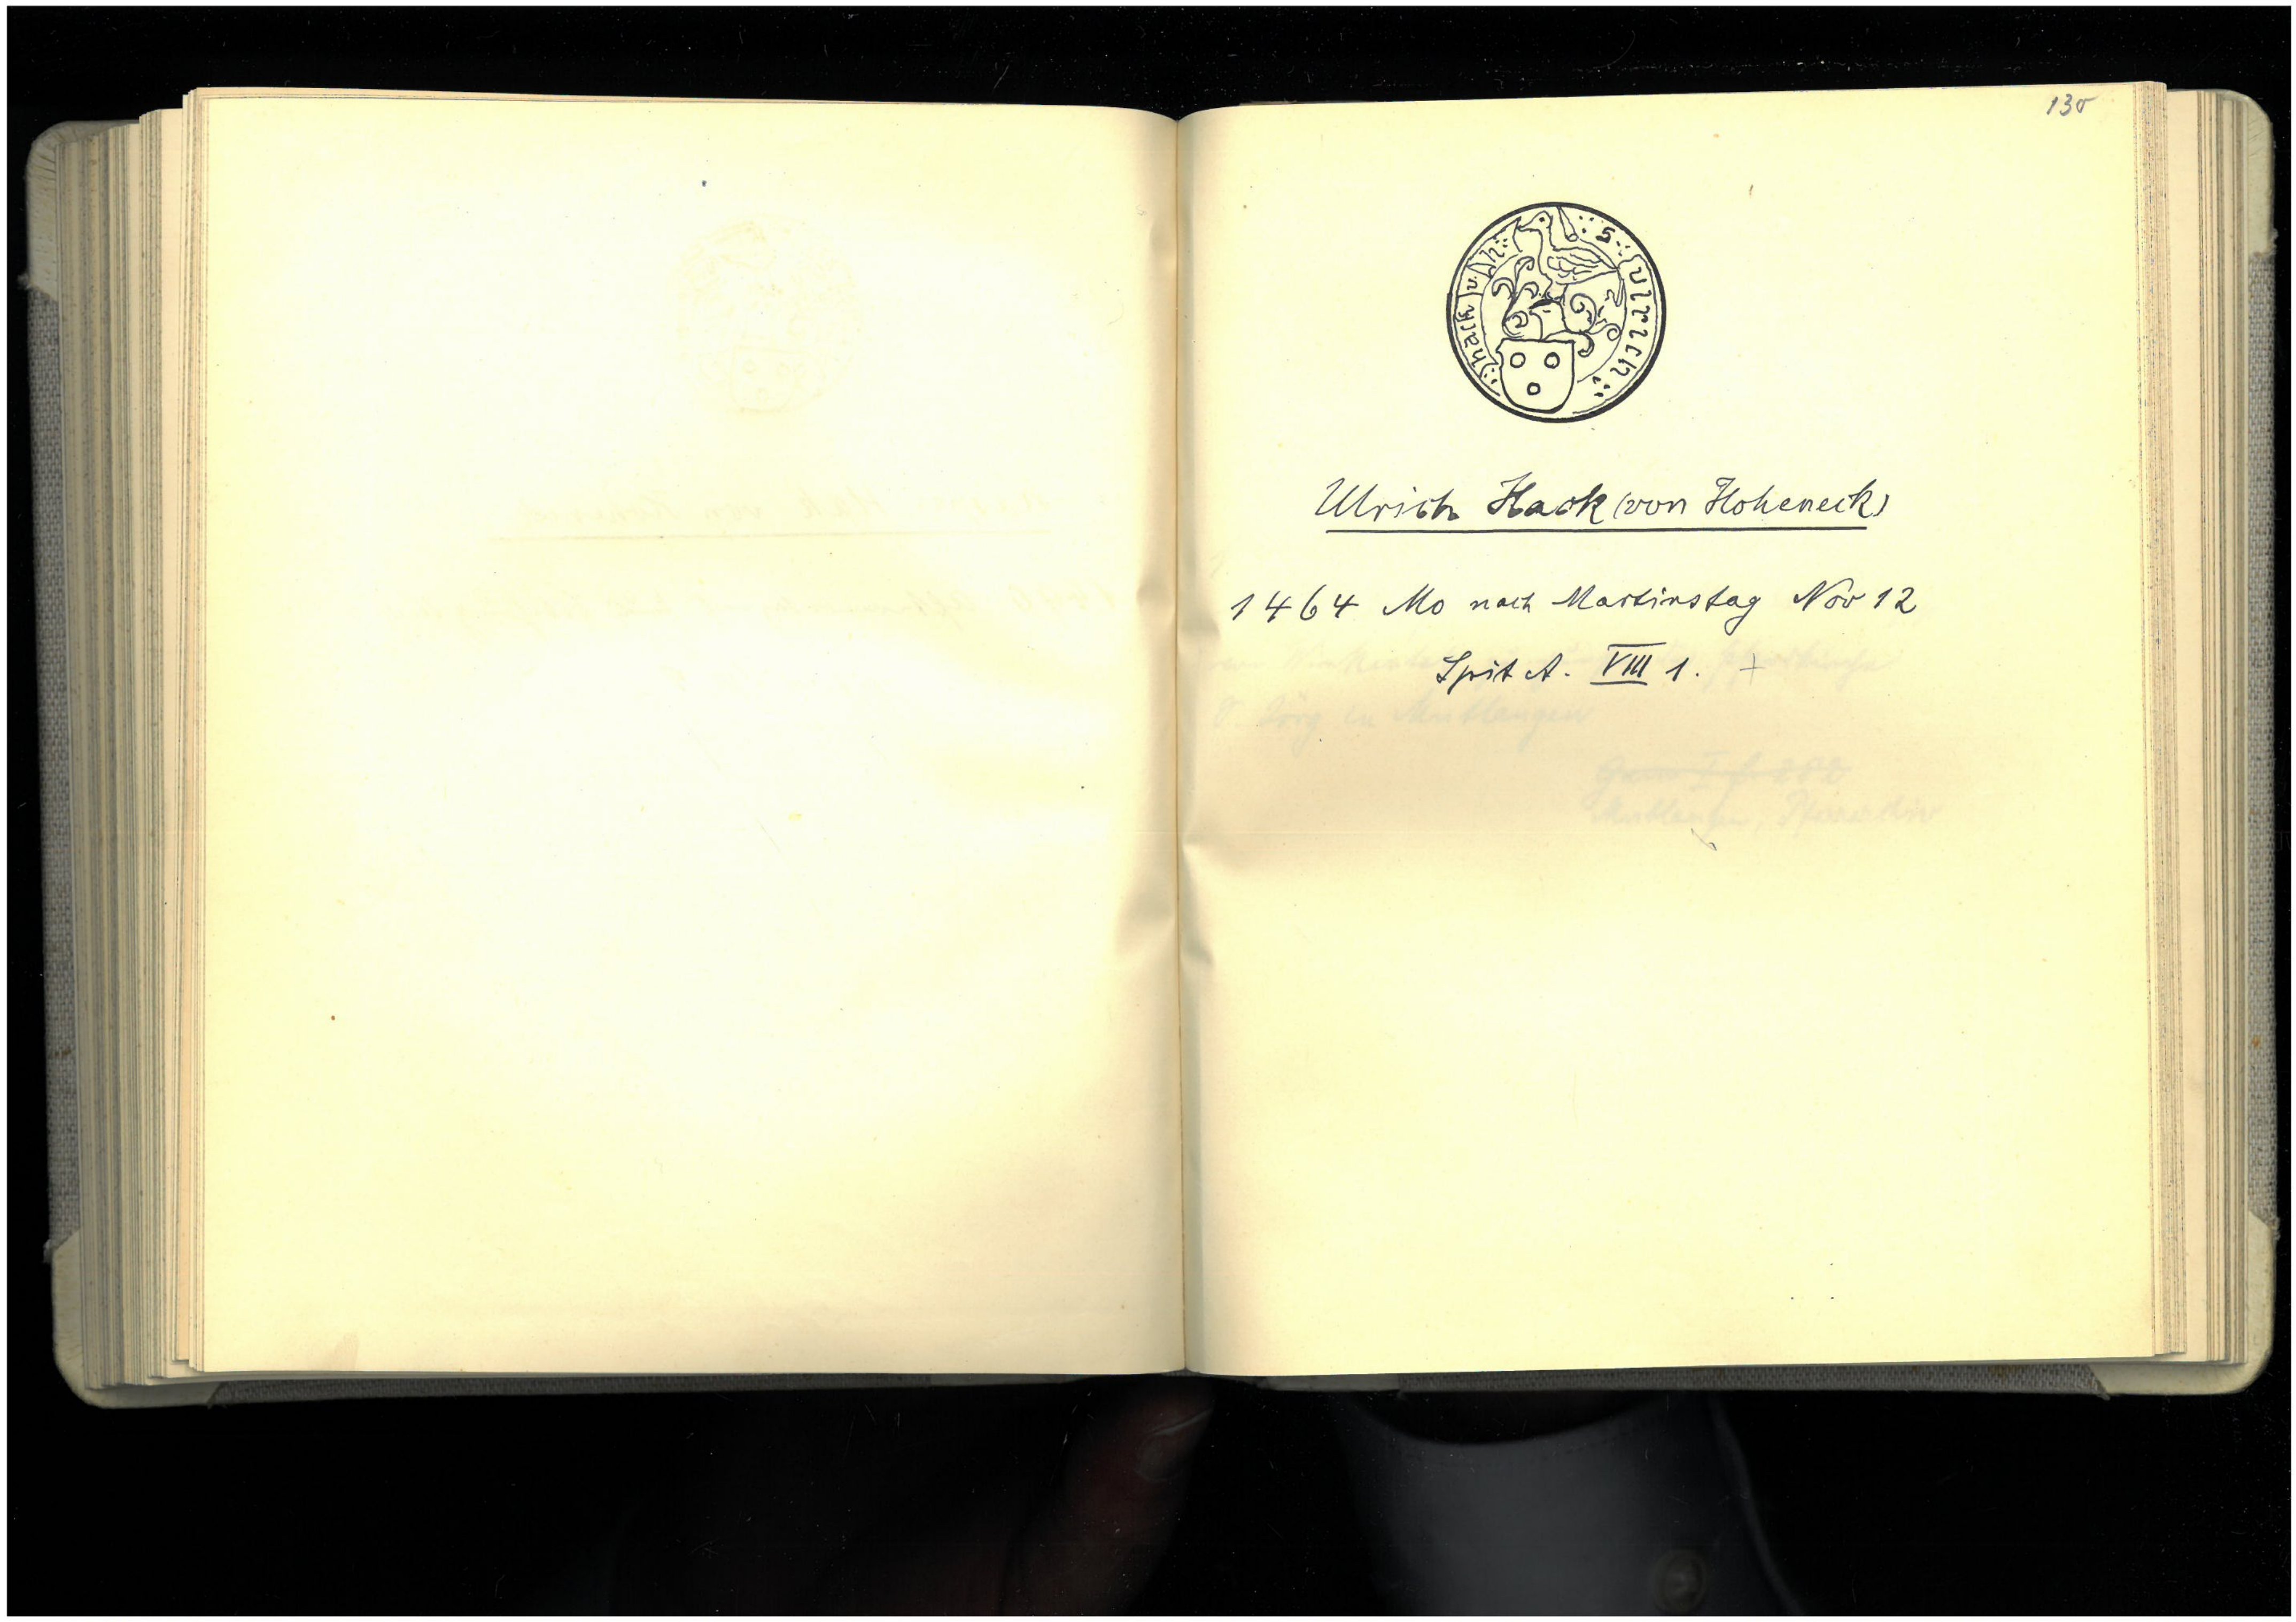 130
S. Ulrich
hack v. H
Ulrich Hack (von Hoheneck)
1464 Mo nach Martinstag Nov 12
Spit A. VIII 1. +
S. Jörg in Mutlangen